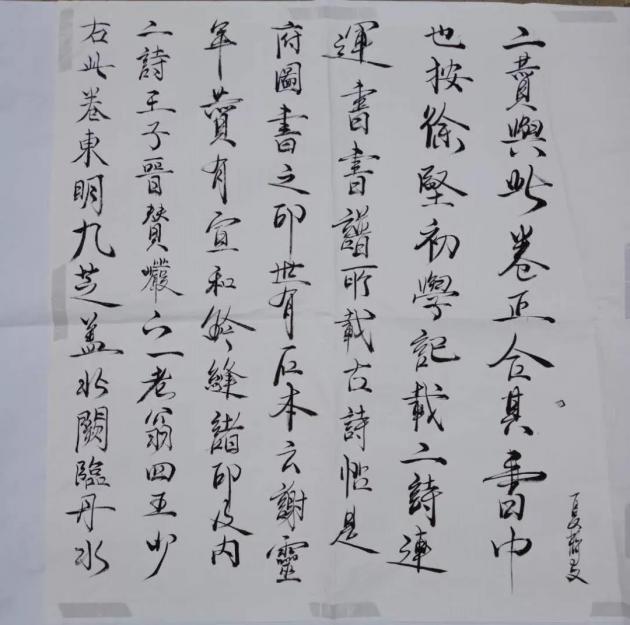 右此卷東明九芝蓋北闕臨丹水
二詩王子晉賛巖下一老翁四五少
年賛有宣和鈐縫諸印及内
府圖書之印世有石本云謝靈
運書書譜所載古詩帖是
也按徐堅初學記載二詩連
二賛與此卷正合其書中
夏